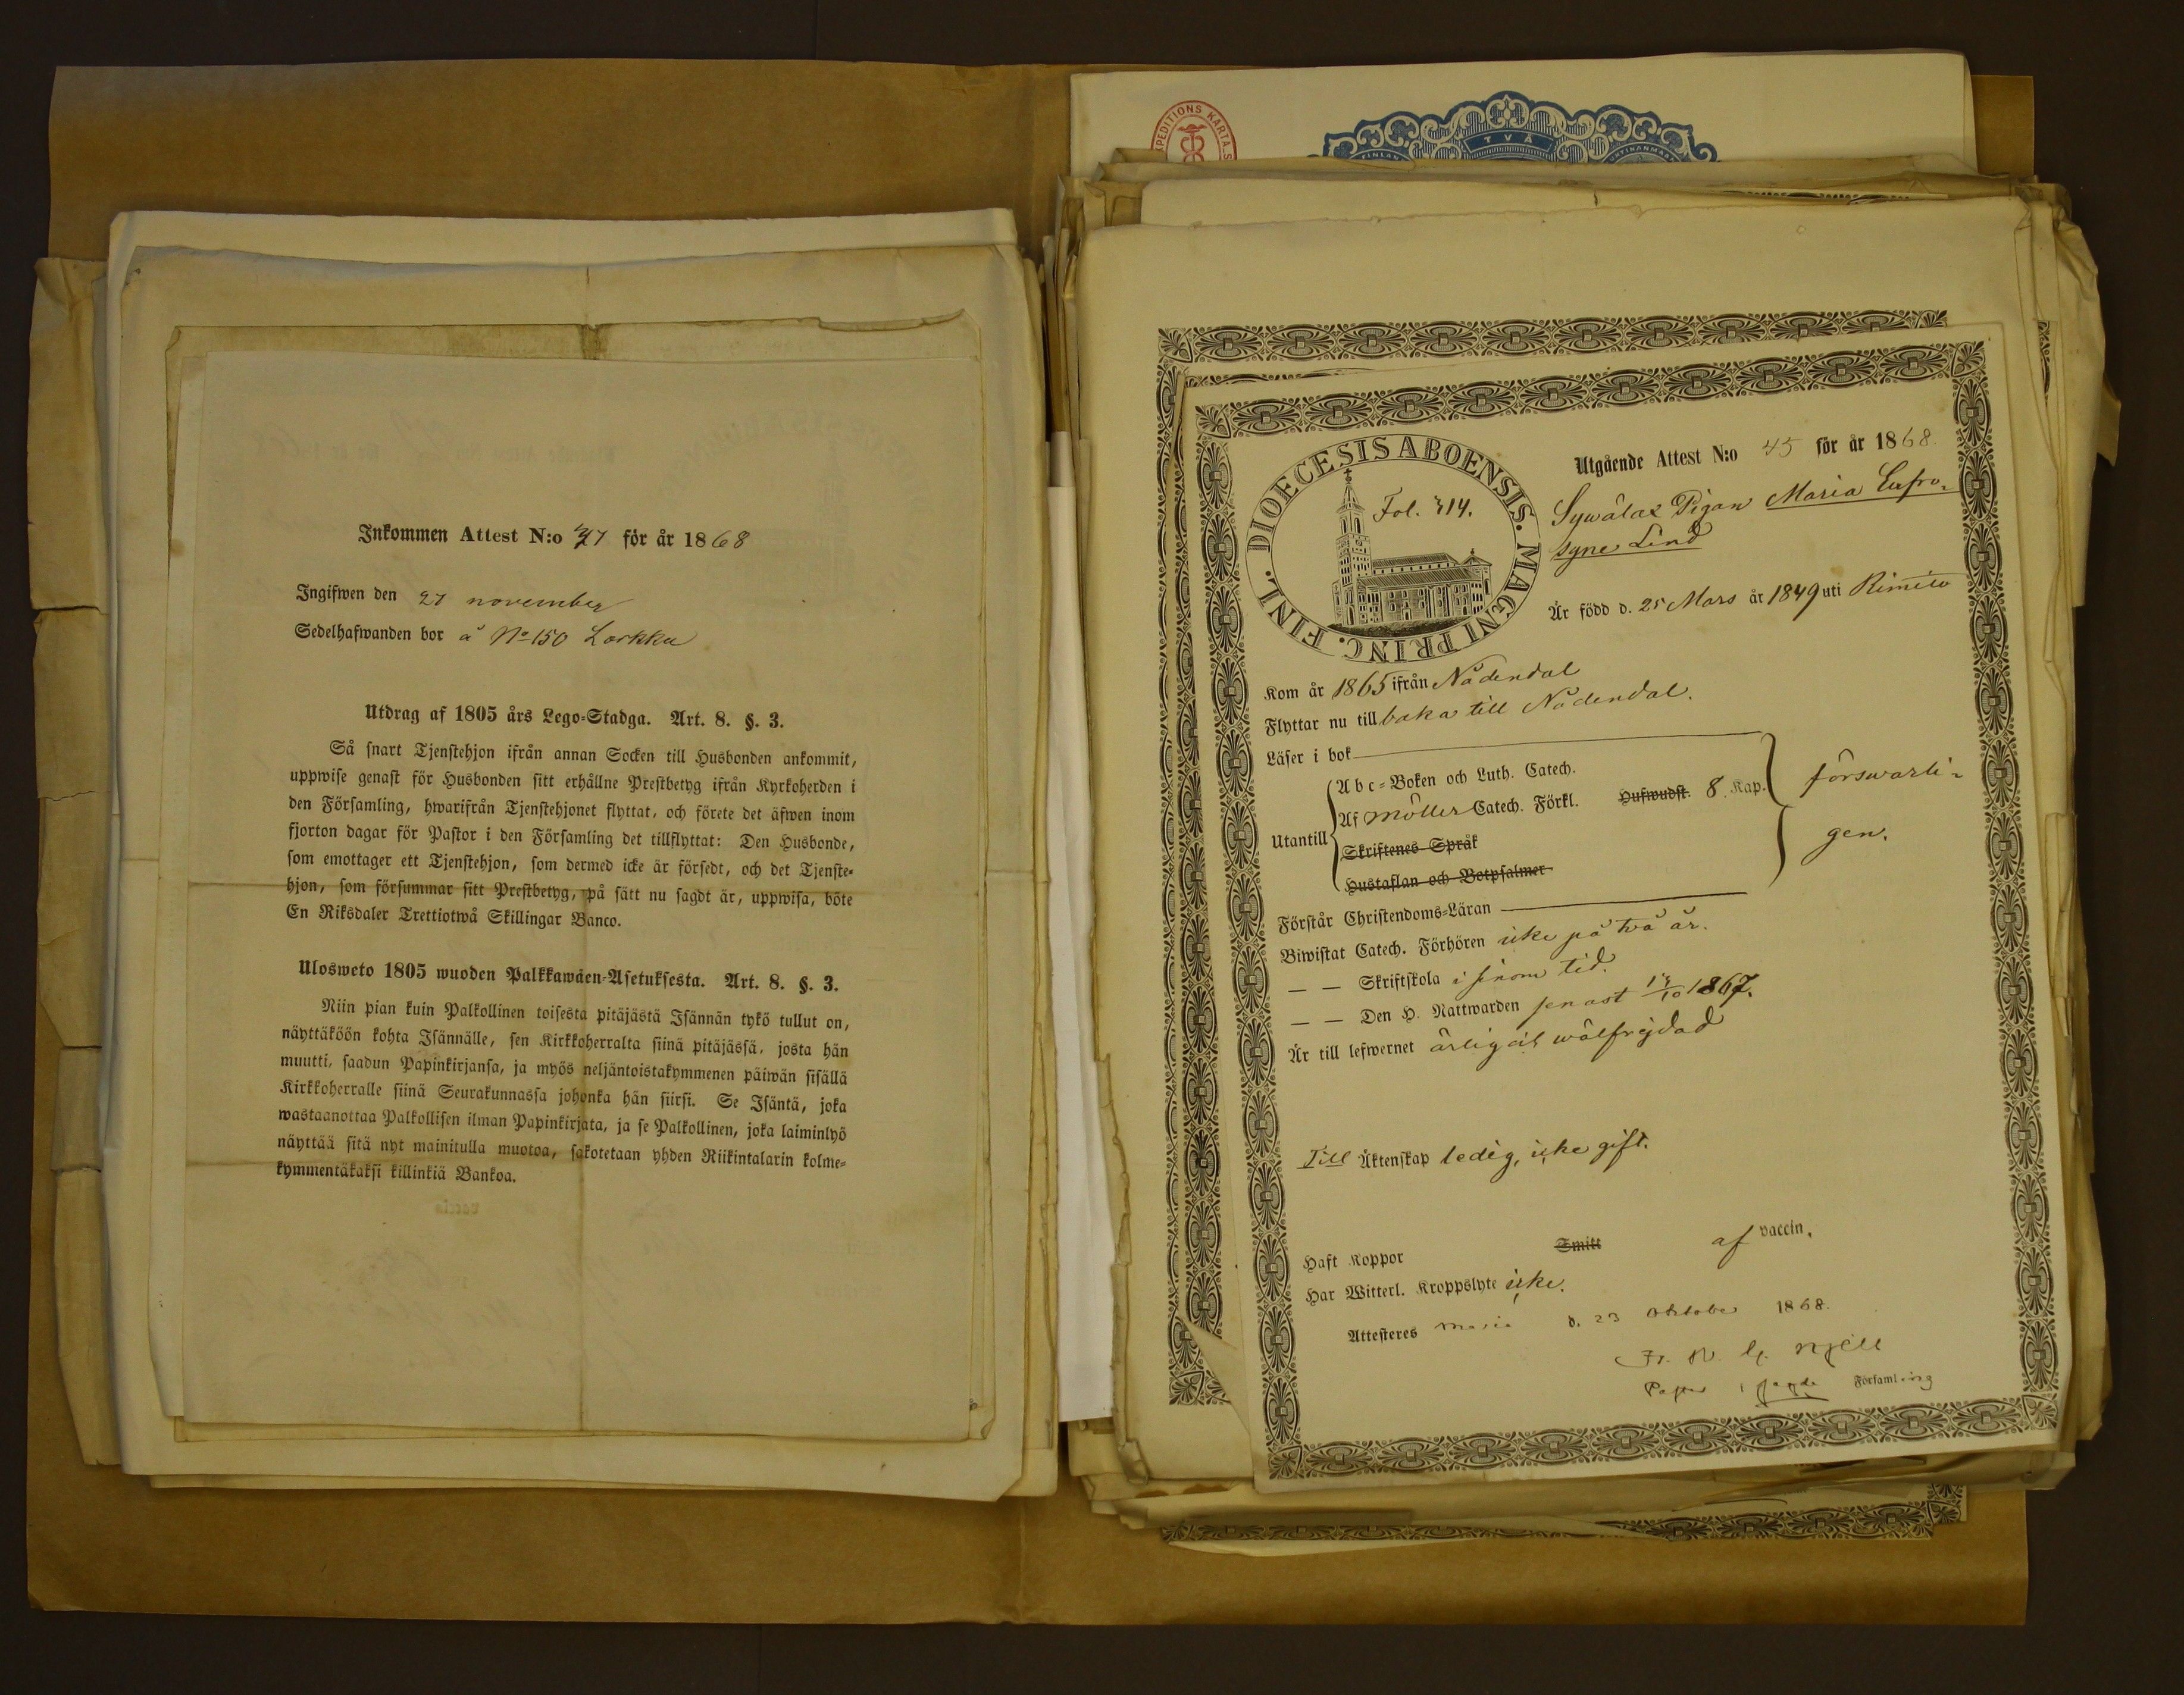 Inkommen Attest N:o 37 för år 1868
Ingifwen den 27 november
Sedelhafwanden bor å No 150 Lorkka
Utdrag af 1805 års Lego-Stadga. Art. 8. §. 3.
Så snart Tjenstehjon ifrån annan Socken till Husbonden ankommit,
uppwise genast för Husbonden sitt erhållne Prestbetyg ifrån Kyrkoherden i
den Församling, hwarifrån Tjenstehjonet flyttat, och förete det äfwen inom
fjorton dagar för Pastor i den Församling det tillflyttat: Den Husbonde,
som emottager ett Tjenstehjon, som dermed icke är försedt, och det Tjenste-
hjon, som försummar sitt Prestbetyg, på sätt nu sagdt är, uppwisa, böte
En Riksdaler Trettiotwå Skillingar Banco.
Ulosweto 1805 wuoden Palkkawäen-Asetuksesta. Art. 8. §. 3.
Niin pian kuin Palkollinen toisesta pitäjästä Isännän tykö tullut on,
näyttäköön kohta Isännälle, sen Kirkkoherralta siinä pitäjässä, josta hän
muutti, saadun Papinkirjansa, ja myös neljäntoistakymmenen päiwän sisällä
Kirkkoherralle siinä Seurakunnassa johonka hän siirsi. Se Isäntä, joka
wastaanottaa Palkollisen ilman Papinkirjata, ja se Palkollinen, joka laiminlyö
näyttää sitä nyt mainitulla muotoa, sakotetaan yhden Riikintalarin kolme-
kymmentäkaksi killinkiä Bankoa.
EXPEDITIONS KARTA.S
TVÅ
FINLAN
DIOECESIS ABOENSIS. MAGNI PRINC. FINL.
Fol. 414.
Utgående Attest N:o 45 för år 1868.
Sywälax Pigan Maria Eufro-
syne Lind
Är född d. 25 Mars år 1849 uti Rimito
Kom år 1865 ifrån Nådendal
Flyttar nu tillbaka till Nådendal.
Läser i bok
Utantill
Abc-Boken och Luth. Catech.
Af Möller Catech. Förkl. Hufwudst. 8 Kap.
Skriftenes Språk
Hustaflan och Botpsalmer
förswarli-
gen.
Förstår Christendoms-Läran
Biwistat Catech. Förhören icke på två år.
— — Skriftskola i sinom tid.
— — Den H. Nattwarden senast 13/10 1867.
Är till lefwernet ärlig ock wälfrejdad
Till Äktenskap ledig, icke gift.
Haft Koppor Smitt af vaccin.
Har Witterl. Kroppslyte icke.
Attesteres Maria d. 23 Oktober 1868.
Fr. W. G. Hjelt
Pastor i sagde Församling